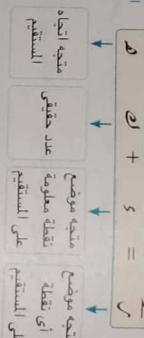 متجه موضع
أى نقطة
متجه موضع
نقطة معلومة
على المستقيم
عدد حقيقى
متجه اتجاه
المستقيم